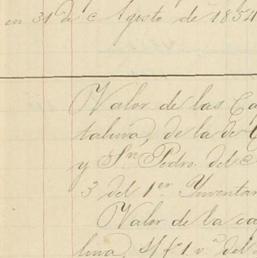 en 31 de Agosto de 1854
Valor de las Ca
talina, de la de
y Sn. Pedro del
3 del 1er Inventar
Valor de la ca
lina, s/ fs 1 va del